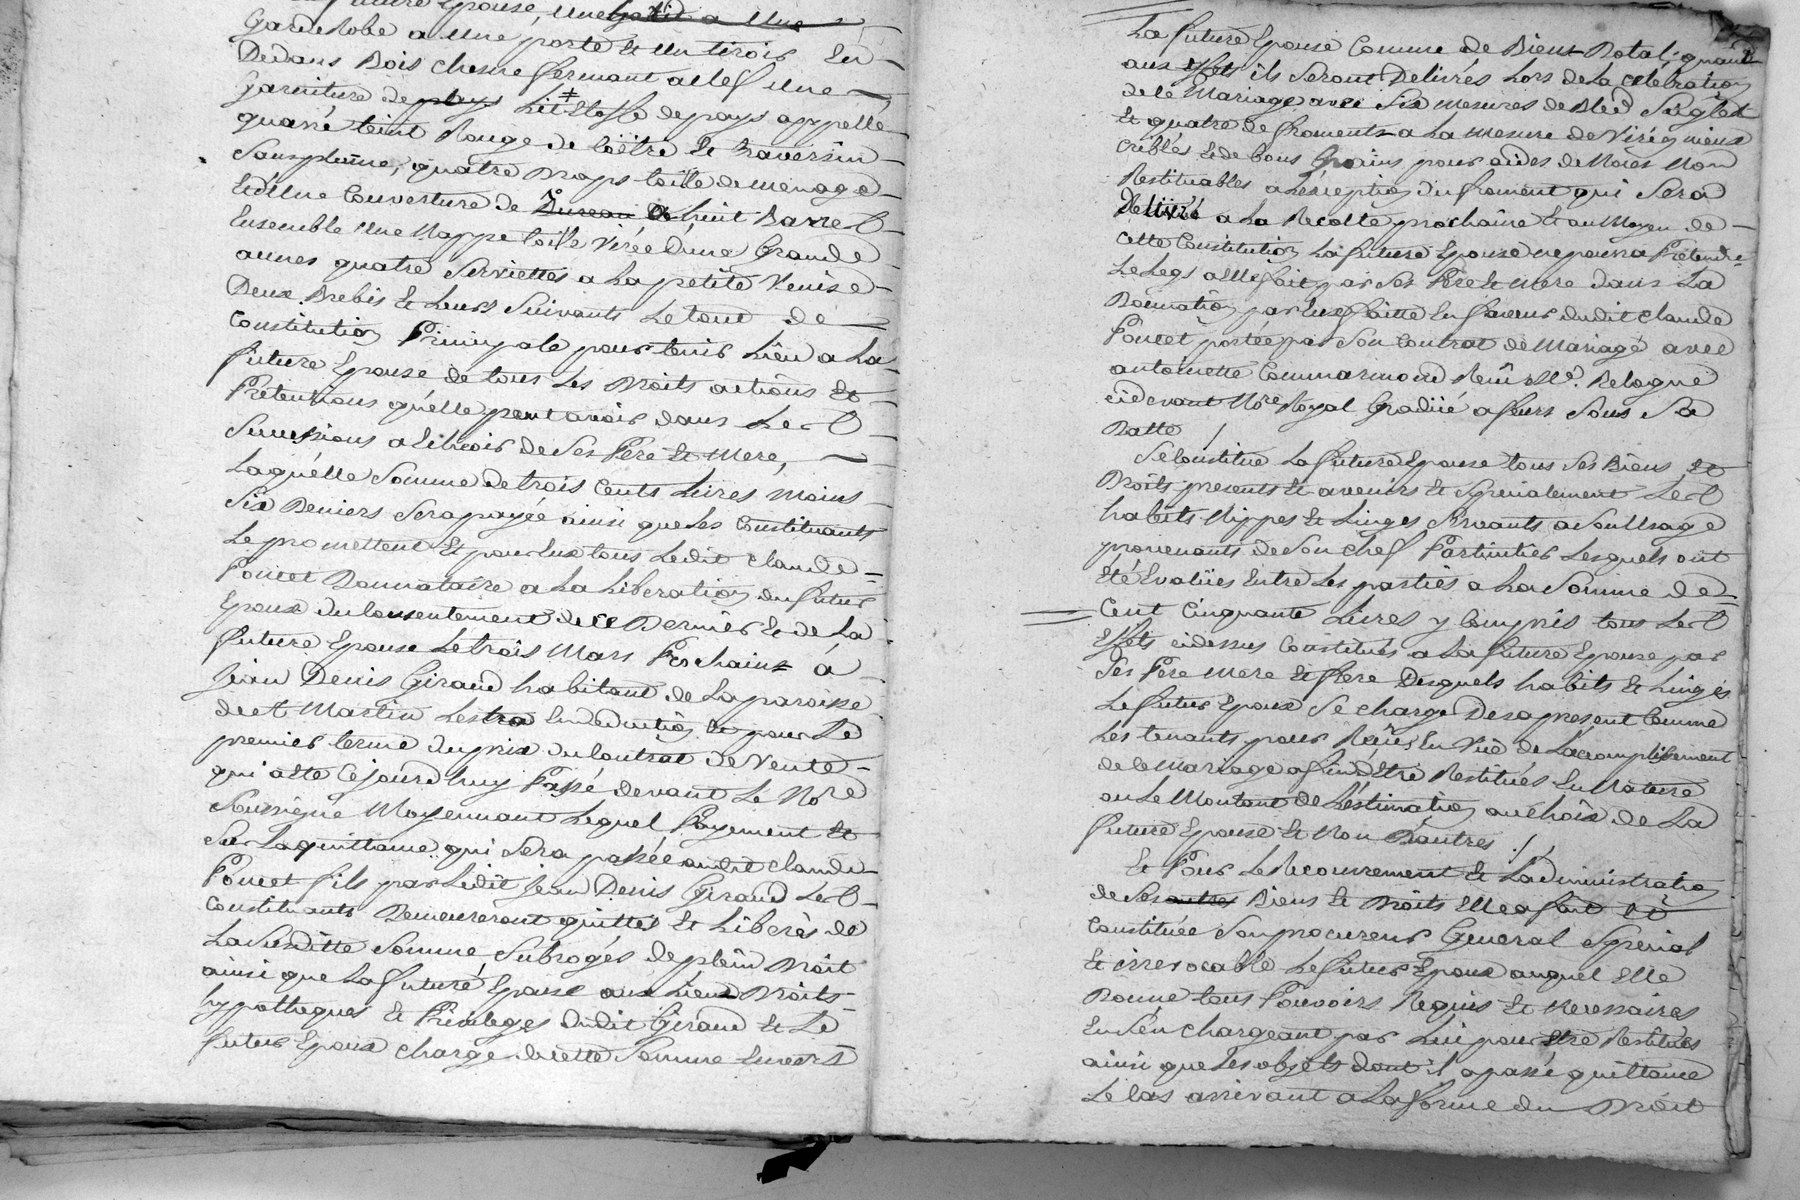 future Epouse, une
Garderobe a une porte et un tiroir En
Dedans Bois chesne fermant a clef une
Garniture de Lit Etoffe de pays appellé
quarré teint Rouge de Coëtre et Traversin
Sans plume, quatre Draps toille de menage
et d'une Couverture de huit Barres
Ensemble une Nappe toille Virée d'une Grande
aunes quatre Serviettes a la petite Venise
Deux Brebis et Leurs Suivants Le tout de
Constitution Principale pour tenir Lieu a La
future Epouse de tous Les Droits actions Et
Prétentions qu'elle peut avoir dans Les
Successions a Echeoir de Ses Père Et Mere,
Laquelle Somme de trois Cents Livres moins
Six Deniers Sera payée ainsi que Les Constituants
Le promettent Et pour Eux tous Ledit Claude
Poncet Donnataire a La Liberation du futur
Epoux du Consentement de ce Dernier Et de La
future Epouse Le trois Mars Prochain à
Jean Denis Giraud habitant de La paroisse
de St Martin Lestra En Deduction Et pour Le
premier terme du prix du Contrat de Vente
qui a Eté Cejourd'huy Passé devant Le Nore
Soussigné Moyennant Lequel Payement Et
Sur La quittance qui Sera passée audit Claude
Poncet fils par Ledit Jean Denis Giraud Les
Constituants Demeureront quittes Et Liberés de
La Susditte Somme Subrogés de plein Droit
ainsi que La future Epouse aux Lieux Droits
hypotheques Et Privileges dudit Giraud Et Le
futur Epoux chargé de cette Somme Envers
La future Epouse Comme de Biens Dotal; quant
aux Effets ils Seront Delivrés Lors de La Celebration
de ce Mariage avec Six mesures de Bled Seigle
Et quatre de froments a La Mesure de Virég mieux
Criblés Et de bons Grains pour aides de Noces Non
Restituables a L'exception du froment qui Sera
Delivré a La Recolte prochaine Et au Moyen de
cette Constitution La future Epouse ne pourra Pretendre
Le Legs a Elle fait par Ses Père Et Mere dans La
Donnation par Eux faitte En faveur dudit Claude
Poncet portée par Son Contrat de Mariage avec
antoinette Commarmond Reçu Me. Relogue
cidevant Nore Royal Gradué a feurs Sous Sa
Datte /
Se Constitue La future Epouse tous Ses Biens Et
Droits presents Et avenirs Et Specialement Les
habits Nippes Et Linges Servants a Son Usage
provenants de Son chef Particulier Lesquels ont
Eté Evalués Entre Les parties a La Somme de
Cent Cinquante Livres y Compris tous Les
Effets cidessus Constitués a La future Epouse par
Ses Pere Mere Et frere Desquels habits Et Linges
Le futur Epoux Se charge Des a present Comme
Les tenants pour Reçus En Vüe de L'accomplissement
de ce Mariage afin d'Etre Restitués En Nature
ou Le Montant de L'estimation au choix de La
future Epouse Et Non D'autres /
Et Pour Le Recouvrement Et L'administration
de Ses autres Biens Et Droits Elle a fait Et
Constituée Son procureur General Special
Et irrevocable Le futur Epoux auquel Elle
Donne tous Pouvoirs Requis Et Necessaires
En S'en chargeant par Lui pour Etre Restitués
ainsi que Les objets dont il a passé quittance
Le Cas arrivant a La forme du Droit